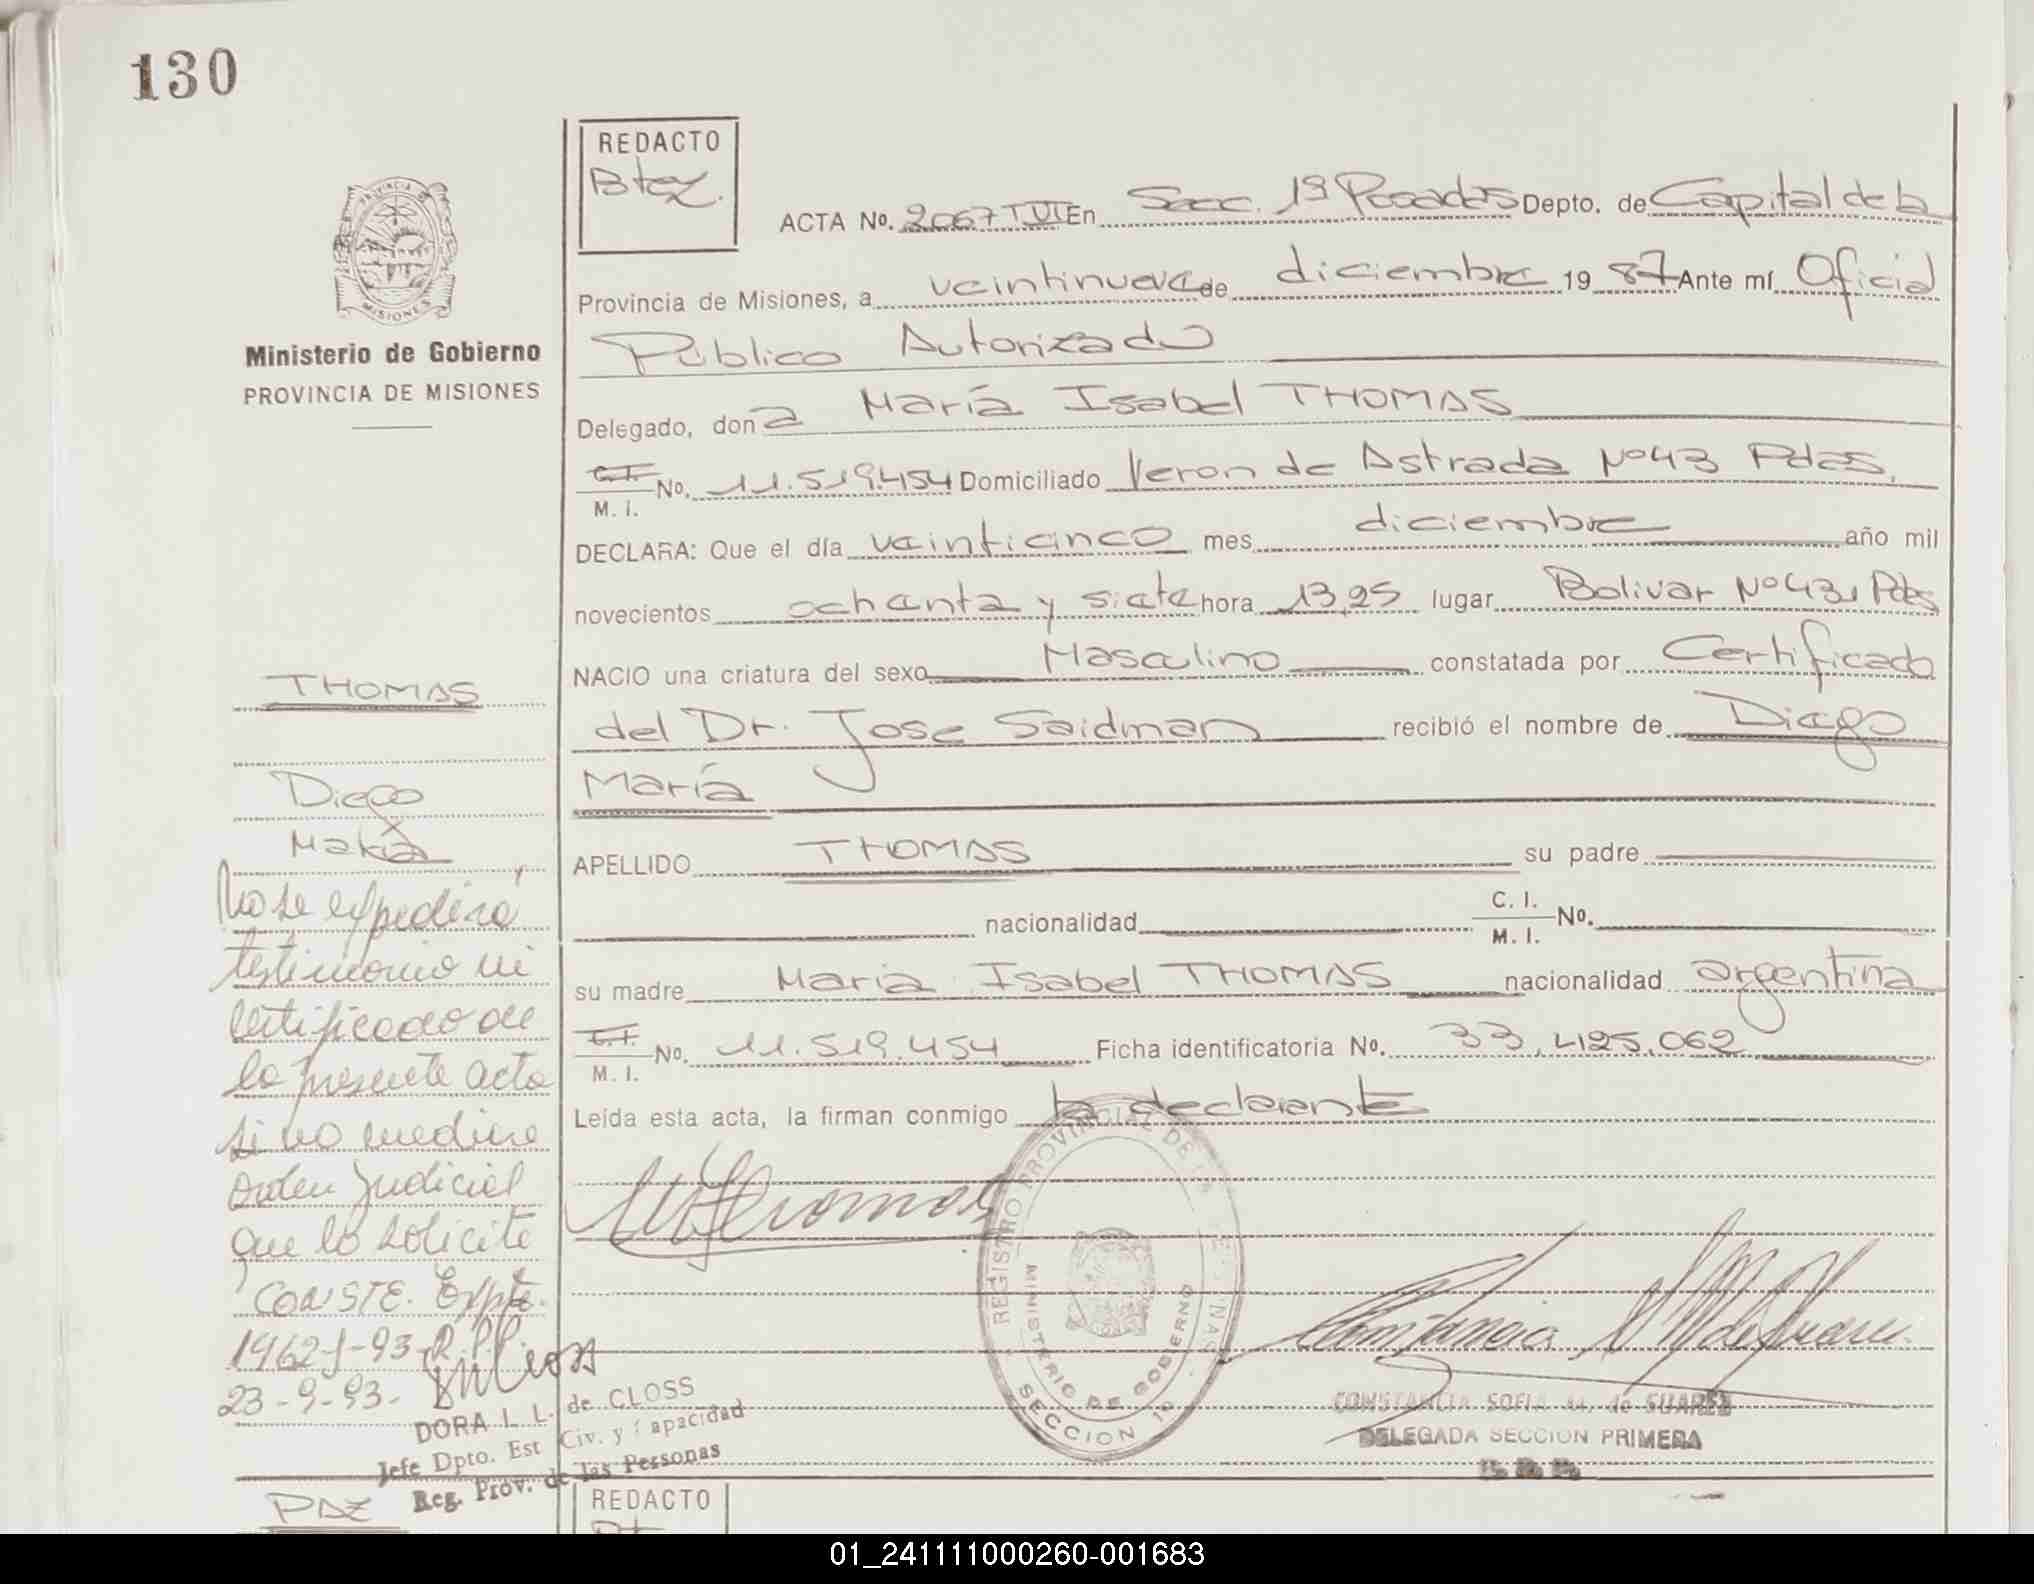 130
REDACTO
Btez.
ACTA No. 2067 T VI En Secc. 1ª Posadas Depto. de Capital de la
Provincia de Misiones, a veintinueve de diciembre 19 87 Ante mí Oficial
Público Autorizado
Delegado, don a María Isabel THOMAS
C.I. M. I. No. 11.519.454 Domiciliado Veron de Astrada Nº 43 Pdas,
DECLARA: Que el día veinticinco mes diciembre año mil
novecientos ochenta y siete hora 13,25 lugar Bolivar Nº 43, Pdas
NACIO una criatura del sexo Masculino constatada por Certificado
del Dr. Jose Saidman recibió el nombre de Diego
María
APELLIDO THOMAS su padre
nacionalidad C. I. M. I. No.
su madre Maria Isabel THOMAS nacionalidad argentina
C.I. M. I. No. 11.519.454 Ficha identificatoria No. 33,425,062
Leída esta acta, la firman conmigo la declarante
PROVINCIA DE
MISIONES
Ministerio de Gobierno
PROVINCIA DE MISIONES
THOMAS
Diego
María
No se expedirá
testimonio ni
certificado de
la presente acta
si no mediare
orden judicial
que lo solicite
CONSTE. Expte.
1962-J-93-R.P.P.
23-9-93-
DORA I. L. de CLOSS
Jefe Dpto. Est Civ. y Capacidad
Reg. Prov. de las Personas
REGISTRO PROVINCIAL DE LAS PERSONAS
MINISTERIO DE GOBIERNO
SECCION 1ª
CONSTANCIA SOFIA M. de SUAREZ
DELEGADA SECCION PRIMERA
PAZ
REDACTO
01_241111000260-001683